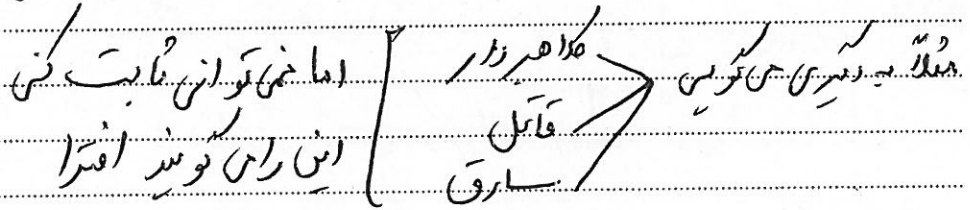 مثلاً به دیگری می‌گویی
کلاهبردار
قاتل
سارق
اما نمی‌توانی ثابت کنی
این را می‌گویند افترا